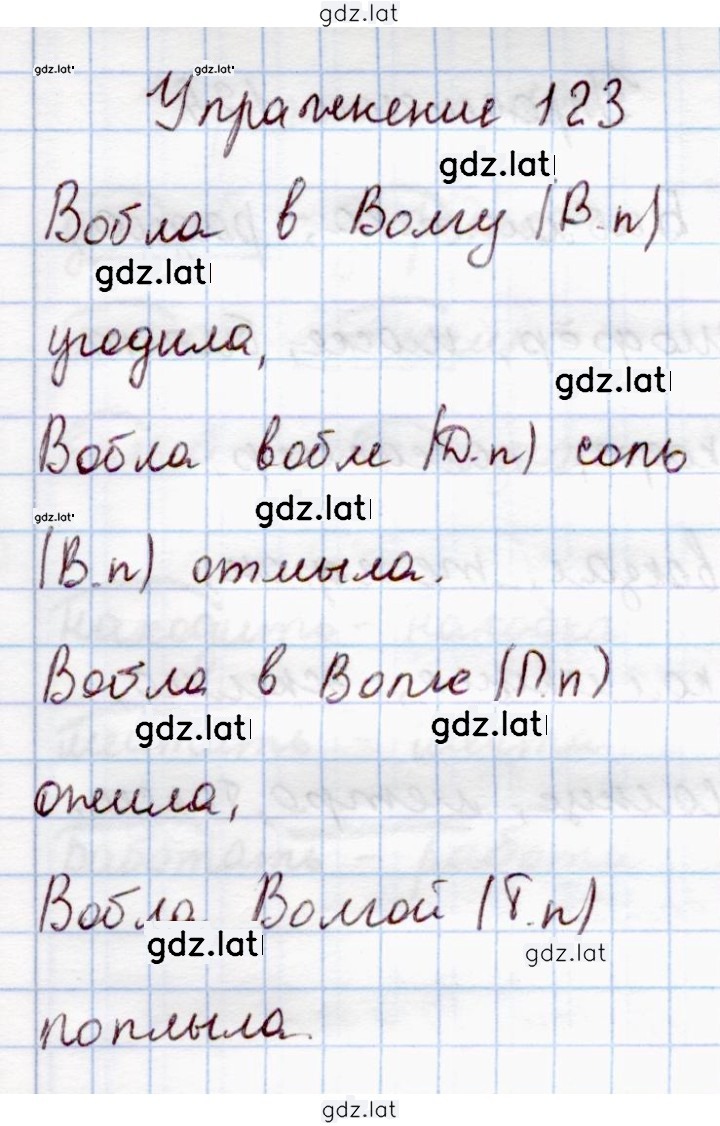 gdz.lat
gdz.lat gdz.lat
Упражнение 123
gdz.lat
Вобла в Волгу (В.п)
gdz.lat
угодила,
gdz.lat
Вобла вобле (Д.п) соль
gdz.lat gdz.lat
(В.п) отмыла.
Вобла в Волге (П.п)
gdz.lat gdz.lat
ожила,
Вобла Волгой (Т.п)
gdz.lat gdz.lat
поплыла.
gdz.lat